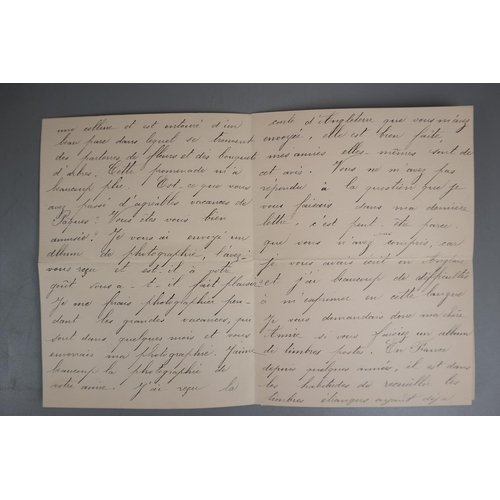 une colline et est entouré d'un
beau parc dans lequel se trouvent
des parterres de fleurs et des bouquets
d'arbres. Cette promenade m'a
beaucoup plu. Est-ce que vous
avez passé d'agréables vacances de
Pâques? Vous êtes vous bien
amusée? Je vous ai envoyé un
album de photographie, l'avez-
vous reçu et est-il à votre
goût vous a-t-il fait plaisir
Je me ferais photographier pen-
dant les grandes vacances, qui
sont dans quelques mois et vous
enverrais ma photographie. J'aime
beaucoup la photographie de
votre amie. J'ai reçu la
carte d'Angleterre que vous m'avez
envoyée, elle est bien faite,
mes amies elles-mêmes sont de
cet avis. Vous ne m'avez pas
répondu à la question que je
vous faisais dans ma dernière
lettre, c'est peut être parce
que vous n'avez compris, car
je vous avais écrit en Anglais
et j'ai beaucoup de difficultés
à m'exprimer en cette langue
Je vous demandais donc ma chère
Amie si vous faisiez un album
de timbres postes. En France
depuis quelques années, il est dans
les habitudes de recueillir les
timbres étrangers ayant déjà